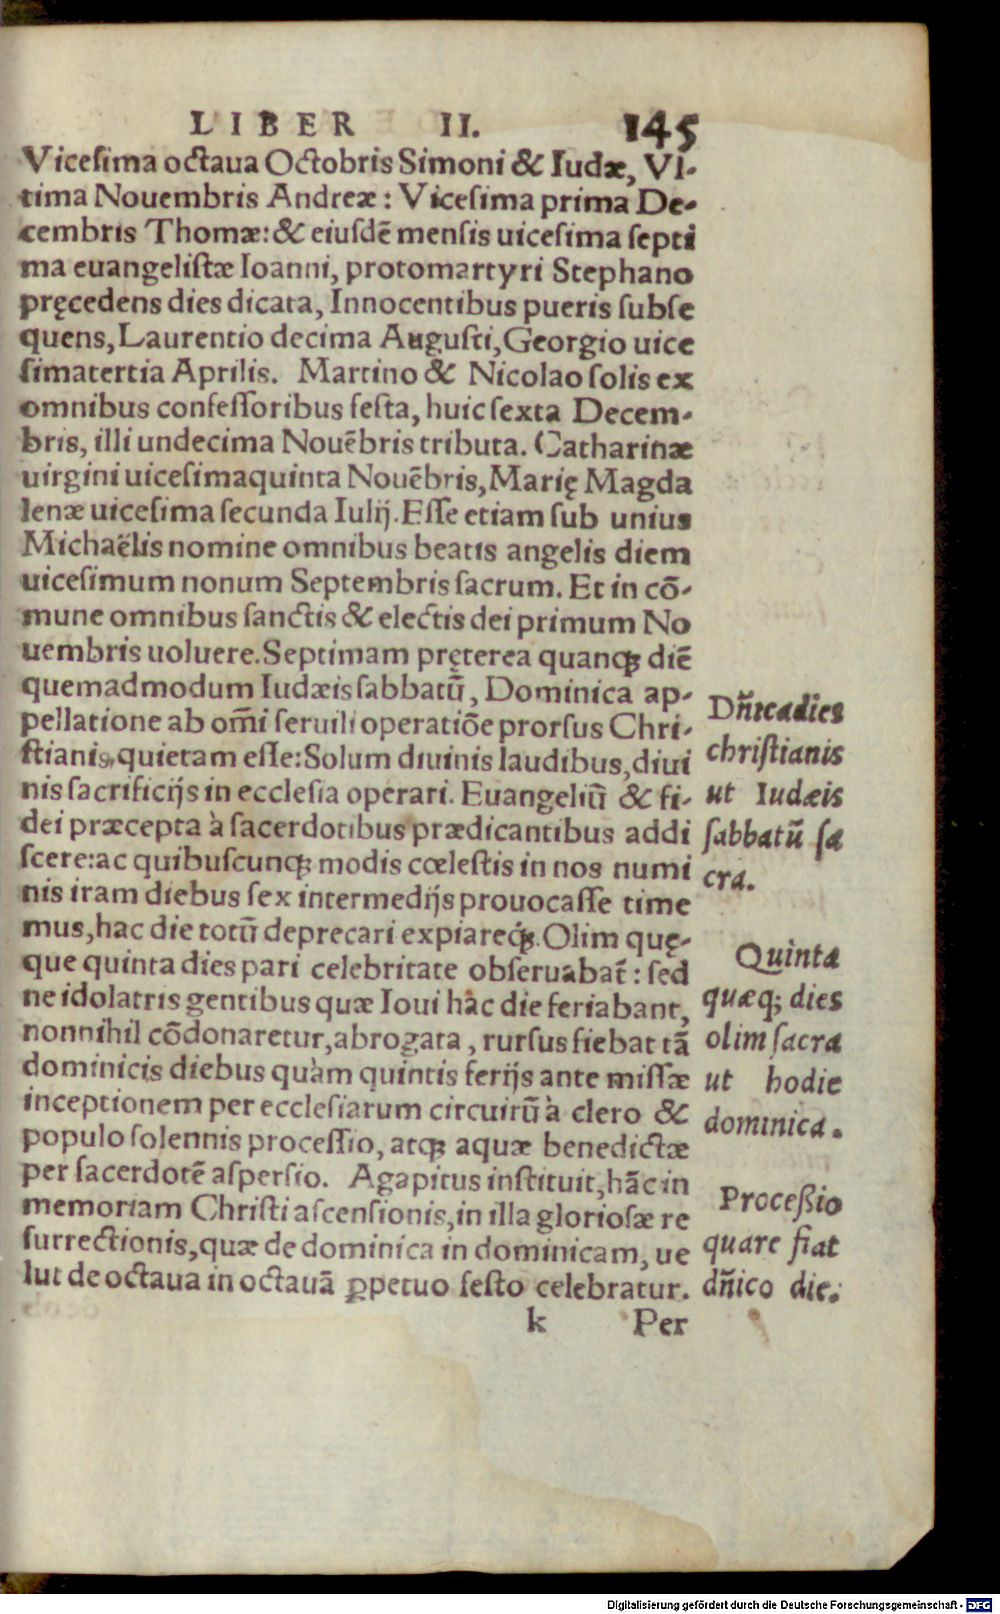 LIBER II. 145
Vicesima octaua Octobris Simoni & Iudæ, Vl-
tima Nouembris Andreæ: Vicesima prima De-
cembris Thomæ: & eiusdē mensis uicesima septi
ma euangelistæ Ioanni, protomartyri Stephano
pręcedens dies dicata, Innocentibus pueris subse
quens, Laurentio decima Augusti, Georgio uice
simatertia Aprilis. Martino & Nicolao solis ex
omnibus confessoribus festa, huic sexta Decem-
bris, illi undecima Nouēbris tributa. Catharinæ
uirgini uicesimaquinta Nouēbris, Marię Magda
lenæ uicesima secunda Iulij. Esse etiam sub unius
Michaëlis nomine omnibus beatis angelis diem
uicesimum nonum Septembris sacrum. Et in cō-
mune omnibus sanctis & electis dei primum No
uembris uoluere. Septimam pręterea quanqȝ diē
quemadmodum Iudæis sabbatū, Dominica ap-
pellatione ab om̄i seruili operatiōe prorsus Chri-
stianis, quietam esse: Solum diuinis laudibus, diui
nis sacrificijs in ecclesia operari. Euangeliū & fi-
dei præcepta à sacerdotibus prædicantibus addi
scere: ac quibuscunqȝ modis cœlestis in nos numi
nis iram diebus sex intermedijs prouocasse time
mus, hac die totū deprecari expiareqȝ. Olim quę-
que quinta dies pari celebritate obseruabat̄: sed
ne idolatris gentibus quæ Ioui hac die feriabant,
nonnihil cōdonaretur, abrogata, rursus fiebat tā
dominicis diebus quàm quintis ferijs ante missæ
inceptionem per ecclesiarum circuirū à clero &
populo solennis processio, atqȝ aquæ benedictæ
per sacerdotē aspersio. Agapitus instituit, hāc in
memoriam Christi ascensionis, in illa gloriosæ re
surrectionis, quæ de dominica in dominicam, ue
lut de octaua in octauā ꝑpetuo festo celebratur.
k Per
Dn̄icadies
christianis
ut Iudæis
sabbatū sa
cra.
Quinta
quæqȝ dies
olim sacra
ut hodie
dominica.
Proceßio
quare fiat
dn̄ico die.
Digitalisierung gefördert durch die Deutsche Forschungsgemeinschaft - DFG